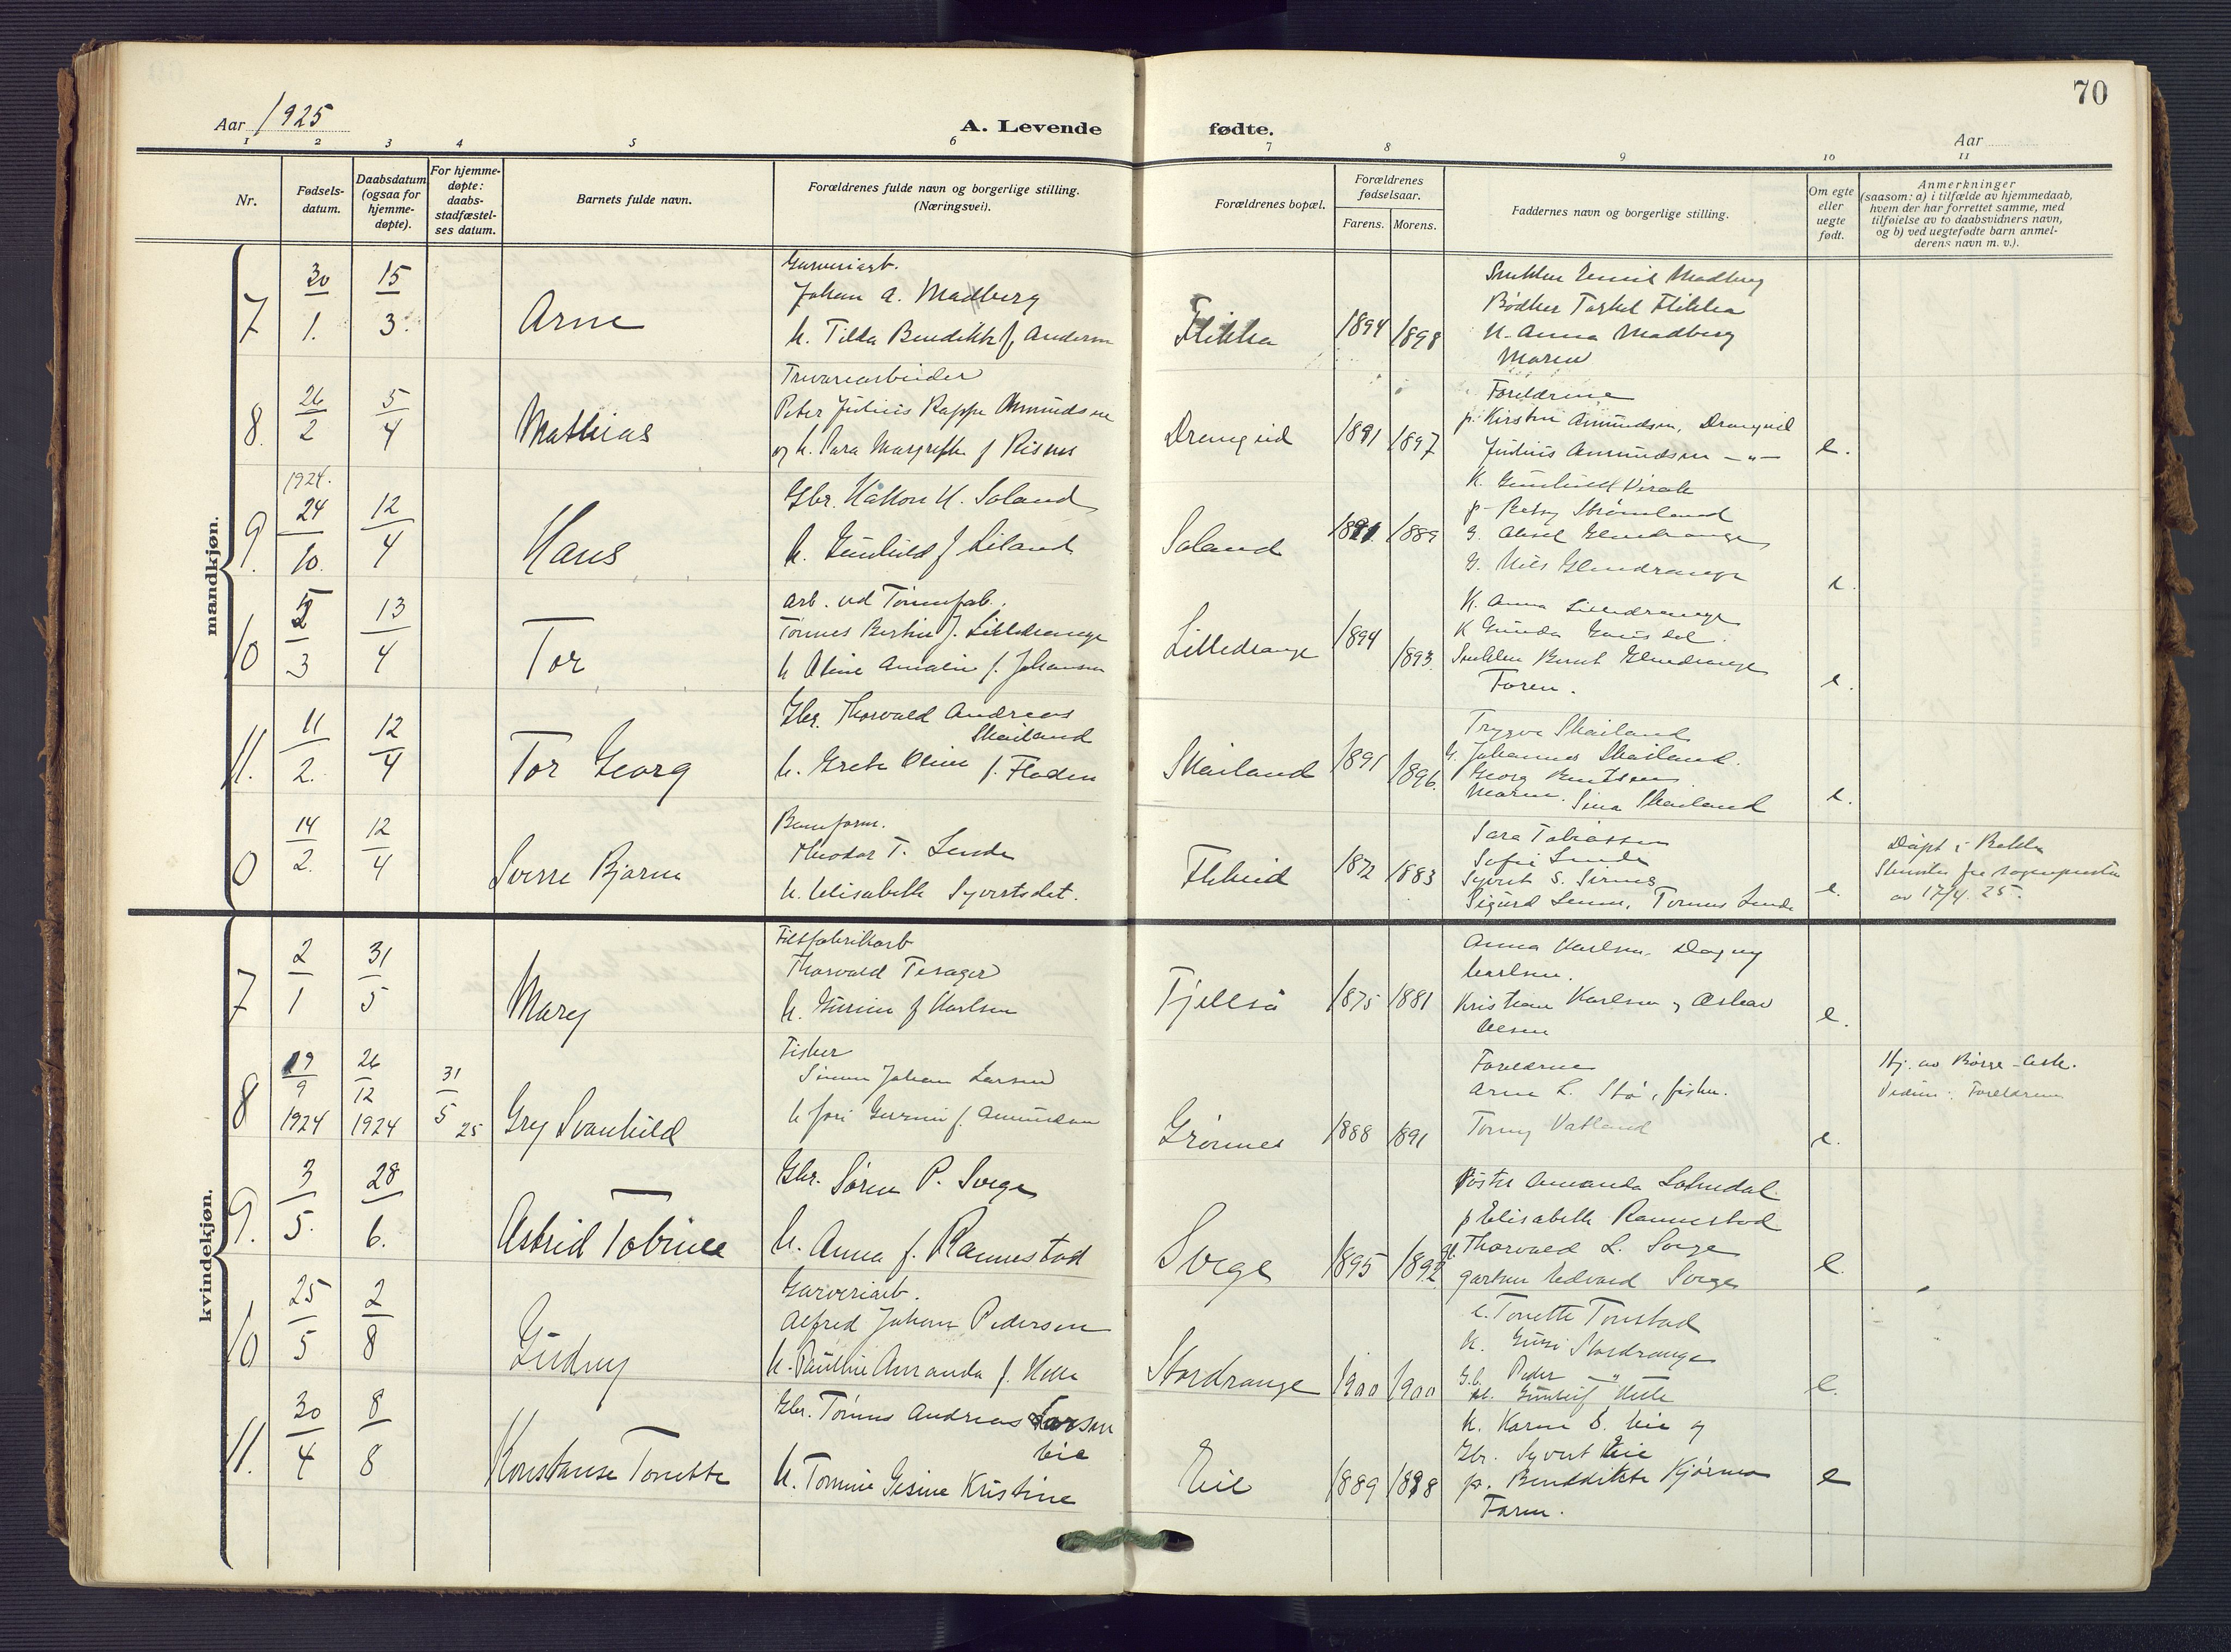 70
Aar 1925
A. Levende fødte.
Aar
1 2 3 4 5 6 7 8 9 10 11
Nr.
Fødsels-
datum.
Daabsdatum
(ogsaa for
hjemme-
døpte).
For hjemme-
døpte:
daabs-
stadfæstel-
ses datum.
Barnets fulde navn.
Forældrenes fulde navn og borgerlige stilling.
(Næringsvei).
Forældrenes bopæl.
Forældrenes
fødselsaar.
Farens. Morens.
Faddernes navn og borgerlige stilling.
Om egte
eller
uegte
født.
Anmerkninger
(saasom: a) i tilfælde av hjemmedaab,
hvem der har forrettet samme, med
tilføielse av to daabsvidners navn,
og b) ved uegtefødte barn anmel-
derens navn m. v.).
mandkjøn.
7
30/1.
15/3.
Arne
Garveriarb.
Johan A. Madberg
h. Tilda Benedikte f. Andersen
Flikka
1894 1898
Snekker Emil Madberg
Bødker Torkel Flikka
K. Anna Madberg
Moren
8.
26/2
5/4
Mathias
Trevarearbeider
Peter Julius Rappe Amundsen
og h. Sara Margrethe f Risnes
Drengeid
1891 1897
Foreldrene
p. Kirstine Amundsen, Drengeid
Julius Amundsen — " —
e.
9.
1924.
24/10.
12/4
Hans
Gbr. Håkon H. Soland
h. Gunhild f Liland
Soland
1889
K. Gunhild
p. Betsy Strømland
G. Aksel Glendrange
G. Nils Glendrange
e.
10
3
13/4
Tor
Arb. ved Tønnefab.
Tønnes Bertin J. Lilledrange
h Oline Amalie f. Johansen
Lilledrange
1894 1893.
K. Anna Lilledrange
K Gunda
Snekker Bernt Glendrange
Faren.
e.
11.
11/2.
12/4
Tor Georg
Gbr. Thorvald Andreas
Skailand
h. Grete Oline f. Floden
Skailand
1891 1896.
Trygve Skailand
G. Johannes Skailand.
Georg Berntsen
Moren. Sina Skailand
e.
0
14/2.
12/4
Sverre Bjarne
Theodor T. Lunde
h. Elisabeth Syvertsdt.
Flikeid
1872 1883
Sara Tobiassen
Sofie Lunde
Syvert S. Sirnes
Sigurd Tønnes Lunde
e.
Døpt i Bakke
av 17/4 25.
kvindekjøn.
7
2/1
31/5
Mary
Filtfabrikarb
Thorvald Tesager
h. Gurine f Karlsen
Fjellså
1875 1881
Anna Karlsen. Dagny
Karlsen.
Kristian Karlsen og Oskar
Olsen
e.
8
19/9
1924
26/12
1924
31/5 25
Gry Svanhild
Fisker
Simon Johan Larsen
h Jori Gurine f. Amundsen
Grønnes
1888 1891
Foreldrene
Arne L. Stø, fisker.
Tomy Vatland
e.
Hj. av Børge
Vidner: Foreldrene
9.
3/5.
28/6.
Astrid Tobine
Gbr. Søren P. Svege
h. Anna f. Rannestad
Svege
1895 1892
Amanda Lohndal.
p Elisabeth Rannestad
Thorvald L. Svege
gartner Edvard Svege
e.
10
25/5
2/8
Gudny
Garveriarb.
Alfred Johan Pedersen
h. Pauline Amanda f. Helle
Stordrange
1900 1900
e. Tonette Tonstad
K. Guri Stordrange
Gb. Peder — " —
Gunleif Helle
e.
11.
30/4
8/8
Konstanse Tonette
Gbr. Tønnes Andreas Larsen
Eie
h. Tomine Gesine Kristine
Eie
1889 1898
K. Karen S. Eie og
Gbr. Syvert Eie
p. Bendikte
Faren.
e